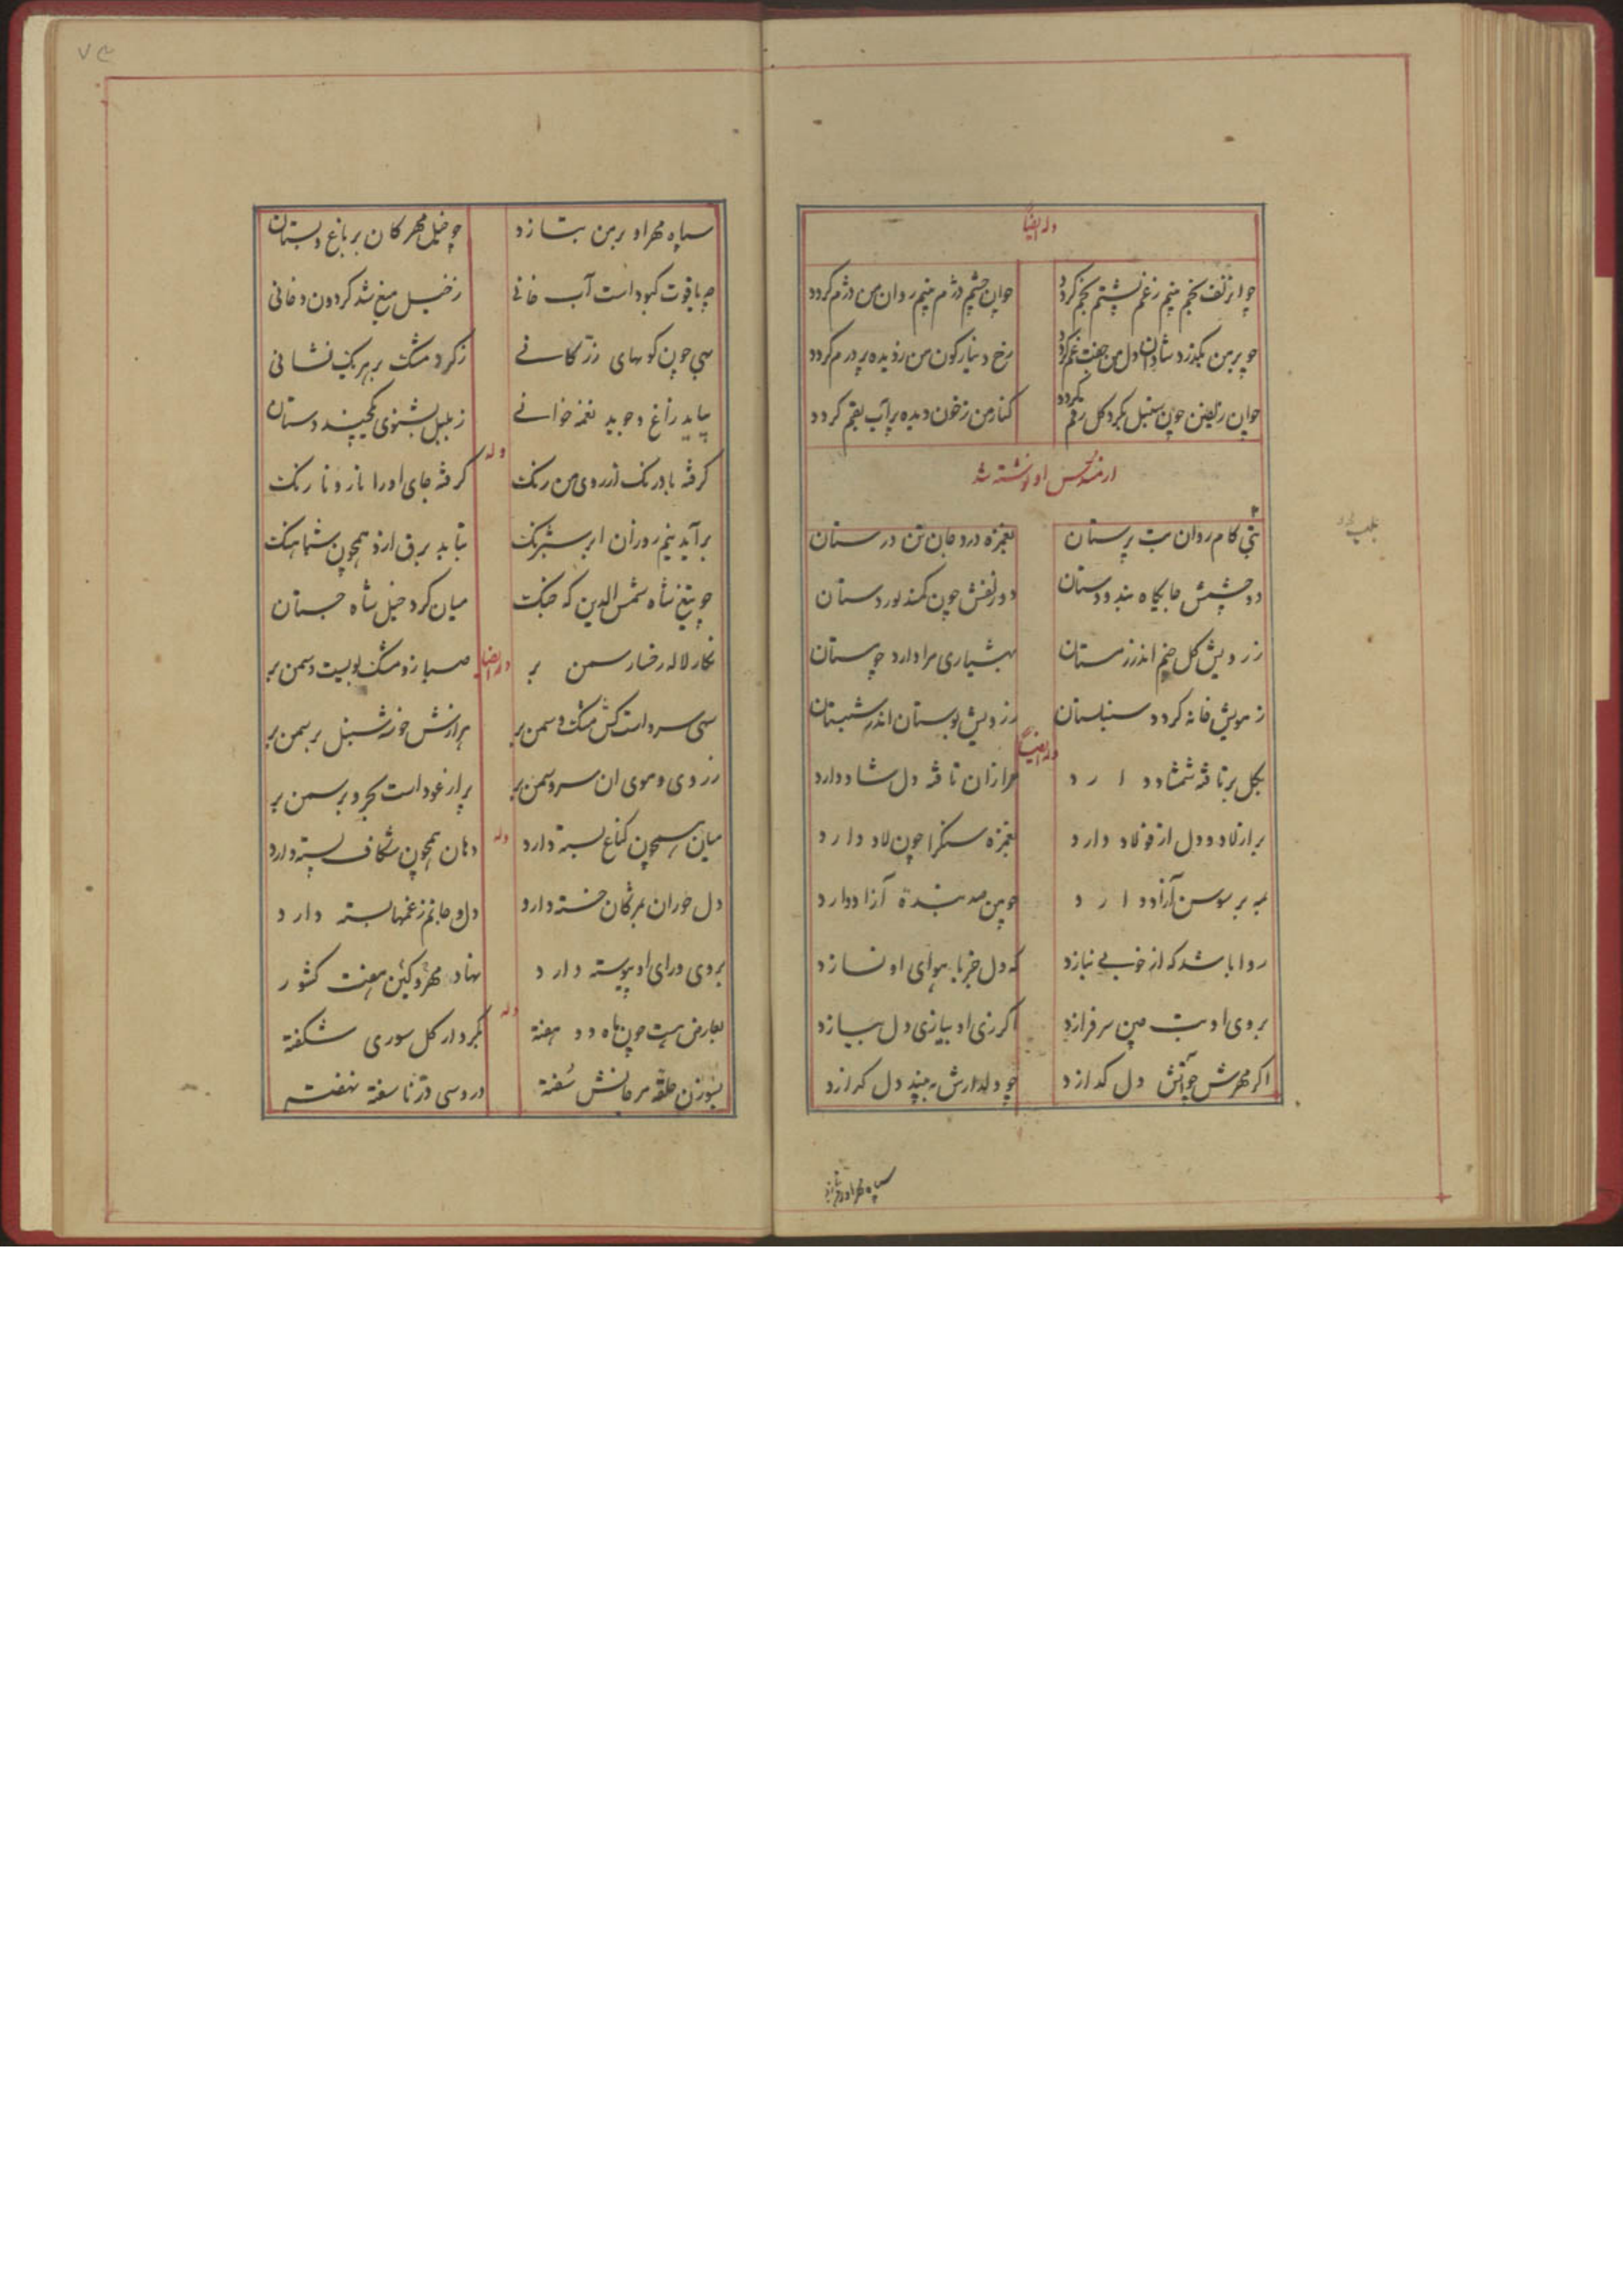 وله ایضا
چو از زلف بخم بینم ز غم پشتم بخم کردد چو ان چشم دژم بینم روان من دژم کردد
چو بر من بکذرد شادان دل من جفت غم کردد رخ دینار کون من ز دیده پر درم کردد
چو ان زلفین چون سنبل بکرد کل رقم کردد کنار من ز خون دیده پر آب بقم کردد
از مخمس او نوشته شد
بتی کام روان بت پرستان بغمزه درد جان تن درستان
دو چشمش جایکاه بند و دستان دو زلفش چون کمند پور دستان
ز رویش کل چنم اندر زمستان بهشیاری مرا دارد چو مستان
ز مویش خانه کردد سنبلستان ز رویش بوستان اندر شبستان
وله ایضا
بکل بر تافته شمشاد دارد مرا زان تافته دل شاد دارد
بر از لاد و دل از فولاد دارد بغمزه سنکرا چون لاد دارد
به بر سوسن آزاد دارد چو من صد بندهٔ آزاد دارد
روا باشد که از خوبی بنازد که دل جز با هوای او نسازد
بروی او بت چین سر فرازد اکر زی او بیازی دل بیازد
اکر مهرش چو آتش دل کدازد چو دلدارش به بیند دل کرازد
سپاه مهر او بر من بتازد
سپاه مهر او بر من بتازد چو خیل مهرکان بر باغ و بستان
چو یاقوت کبود است آب خانی ز خیل میغ شد کردون دخانی
بهی چون کویهای زر کانی ز کرد مشک بر هر یک نشانی
بیابد زاغ وجوید نغمه خوانی ز بلبل بشنوی یکچند دستان
وله
کرفته بادرنک از روی من رنک کرفته جای اورا نار و نارنک
برآید نیم روزان ابر شبرنک بتابد برق ازو همچون شباهنک
چو تیغ شاه شمس الدین که جنک میان کرد خیل شاه جستان
وله ایضا
نکار لاله رخسار سمن بر صبا زو مشک بویست و سمن بر
سهی سرو است کش مشک و سمن بر هزارانش خوشه سنبل بر سمن بر
ز روی و موی ان سرو سمن بر پر از عود است بحر و بر سمن بر
وله
میان همچون کناغ بسته دارد دهان همچون شکاف پسته دارد
دل حوران بمژکان خسته دارد دل و جانم ز غمها بسته دارد
بروی و رای او پیوسته دارد نهاد مهر و کین هفت کشور
وله
بعارض هست چون ماه دو هفته بکردار کل سوری شکفته
بسوزن حلقه مرجانش سفته در و سی در ناسفته نهفته